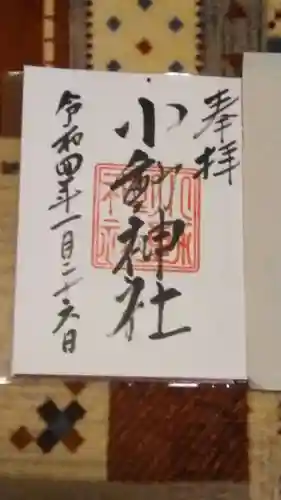 奉拝
小動神社
令和四年一月二十六日